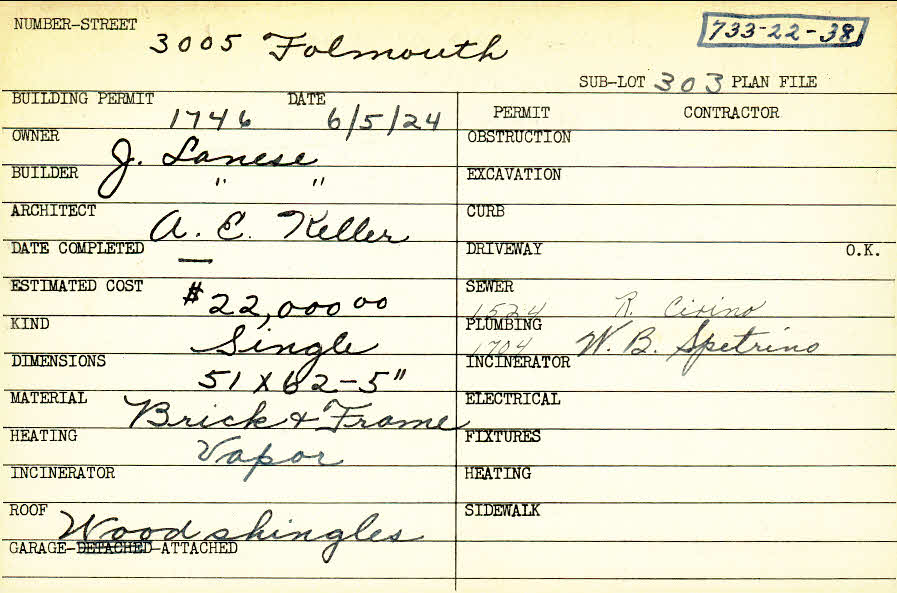 NUMBER-STREET
3005 Folmouth
733-22-38
SUB-LOT 303 PLAN FILE
BUILDING PERMIT DATE
1746 6/5/24
PERMIT CONTRACTOR
OWNER J. Lanese
OBSTRUCTION
BUILDER " "
EXCAVATION
ARCHITECT A. E. Keller
CURB
DATE COMPLETED —
DRIVEWAY O.K.
ESTIMATED COST $22,000 00
SEWER
1524 R. Cirino
KIND Single
PLUMBING
1704 W. B. Spetrino
DIMENSIONS 51 x 62-5"
INCINERATOR
MATERIAL Brick & Frame
ELECTRICAL
HEATING Vapor
FIXTURES
INCINERATOR
HEATING
ROOF Wood shingles
SIDEWALK
GARAGE-DETACHED-ATTACHED